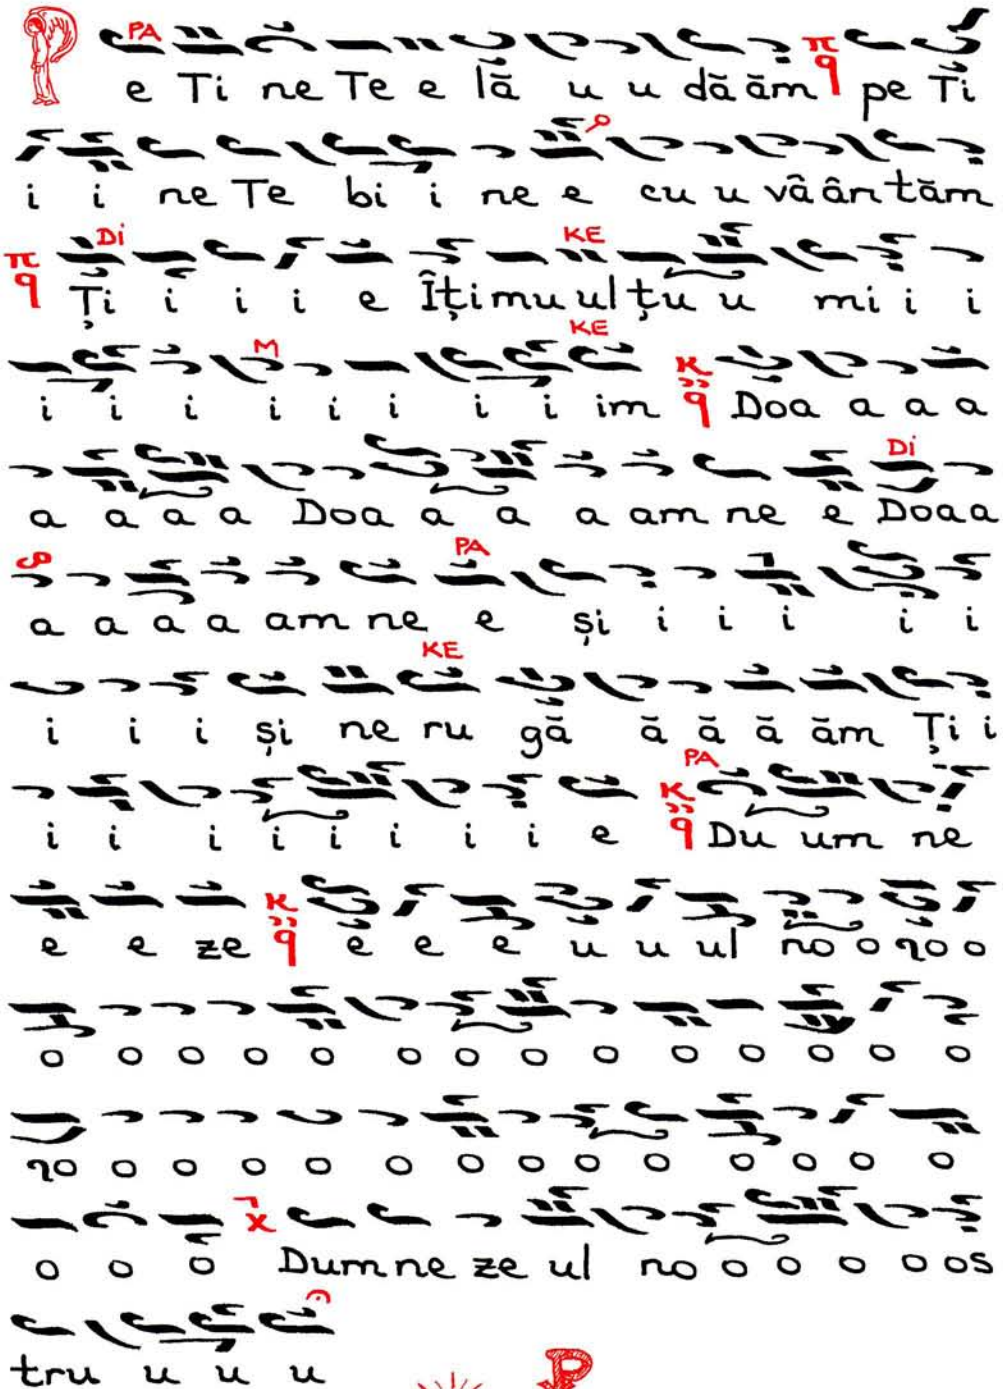 PA
P e Ti ne Te e lă u u dă ăm π q pe Ti
i i ne Te bi i ne e cu u vâ ân tăm
Di KE
π q Ți i i i e Îți mu ul țu u mi i i
M KE
i i i i i i i i im K q Doa a a a
Di
a a a a Doa a a a am ne e Doa a
PA
a a a a am ne e și i i i i i
KE
i i i și ne ru gă ă ă ă ăm Ți i
PA
i i i i i i i i e K q Du um ne
e e ze K q e e e u u ul no o ro o
o o o o o o o o o o o o o o
ro o o o o o o o o o o o o o
o o o x Dum ne ze ul no o o o o os
tru u u u